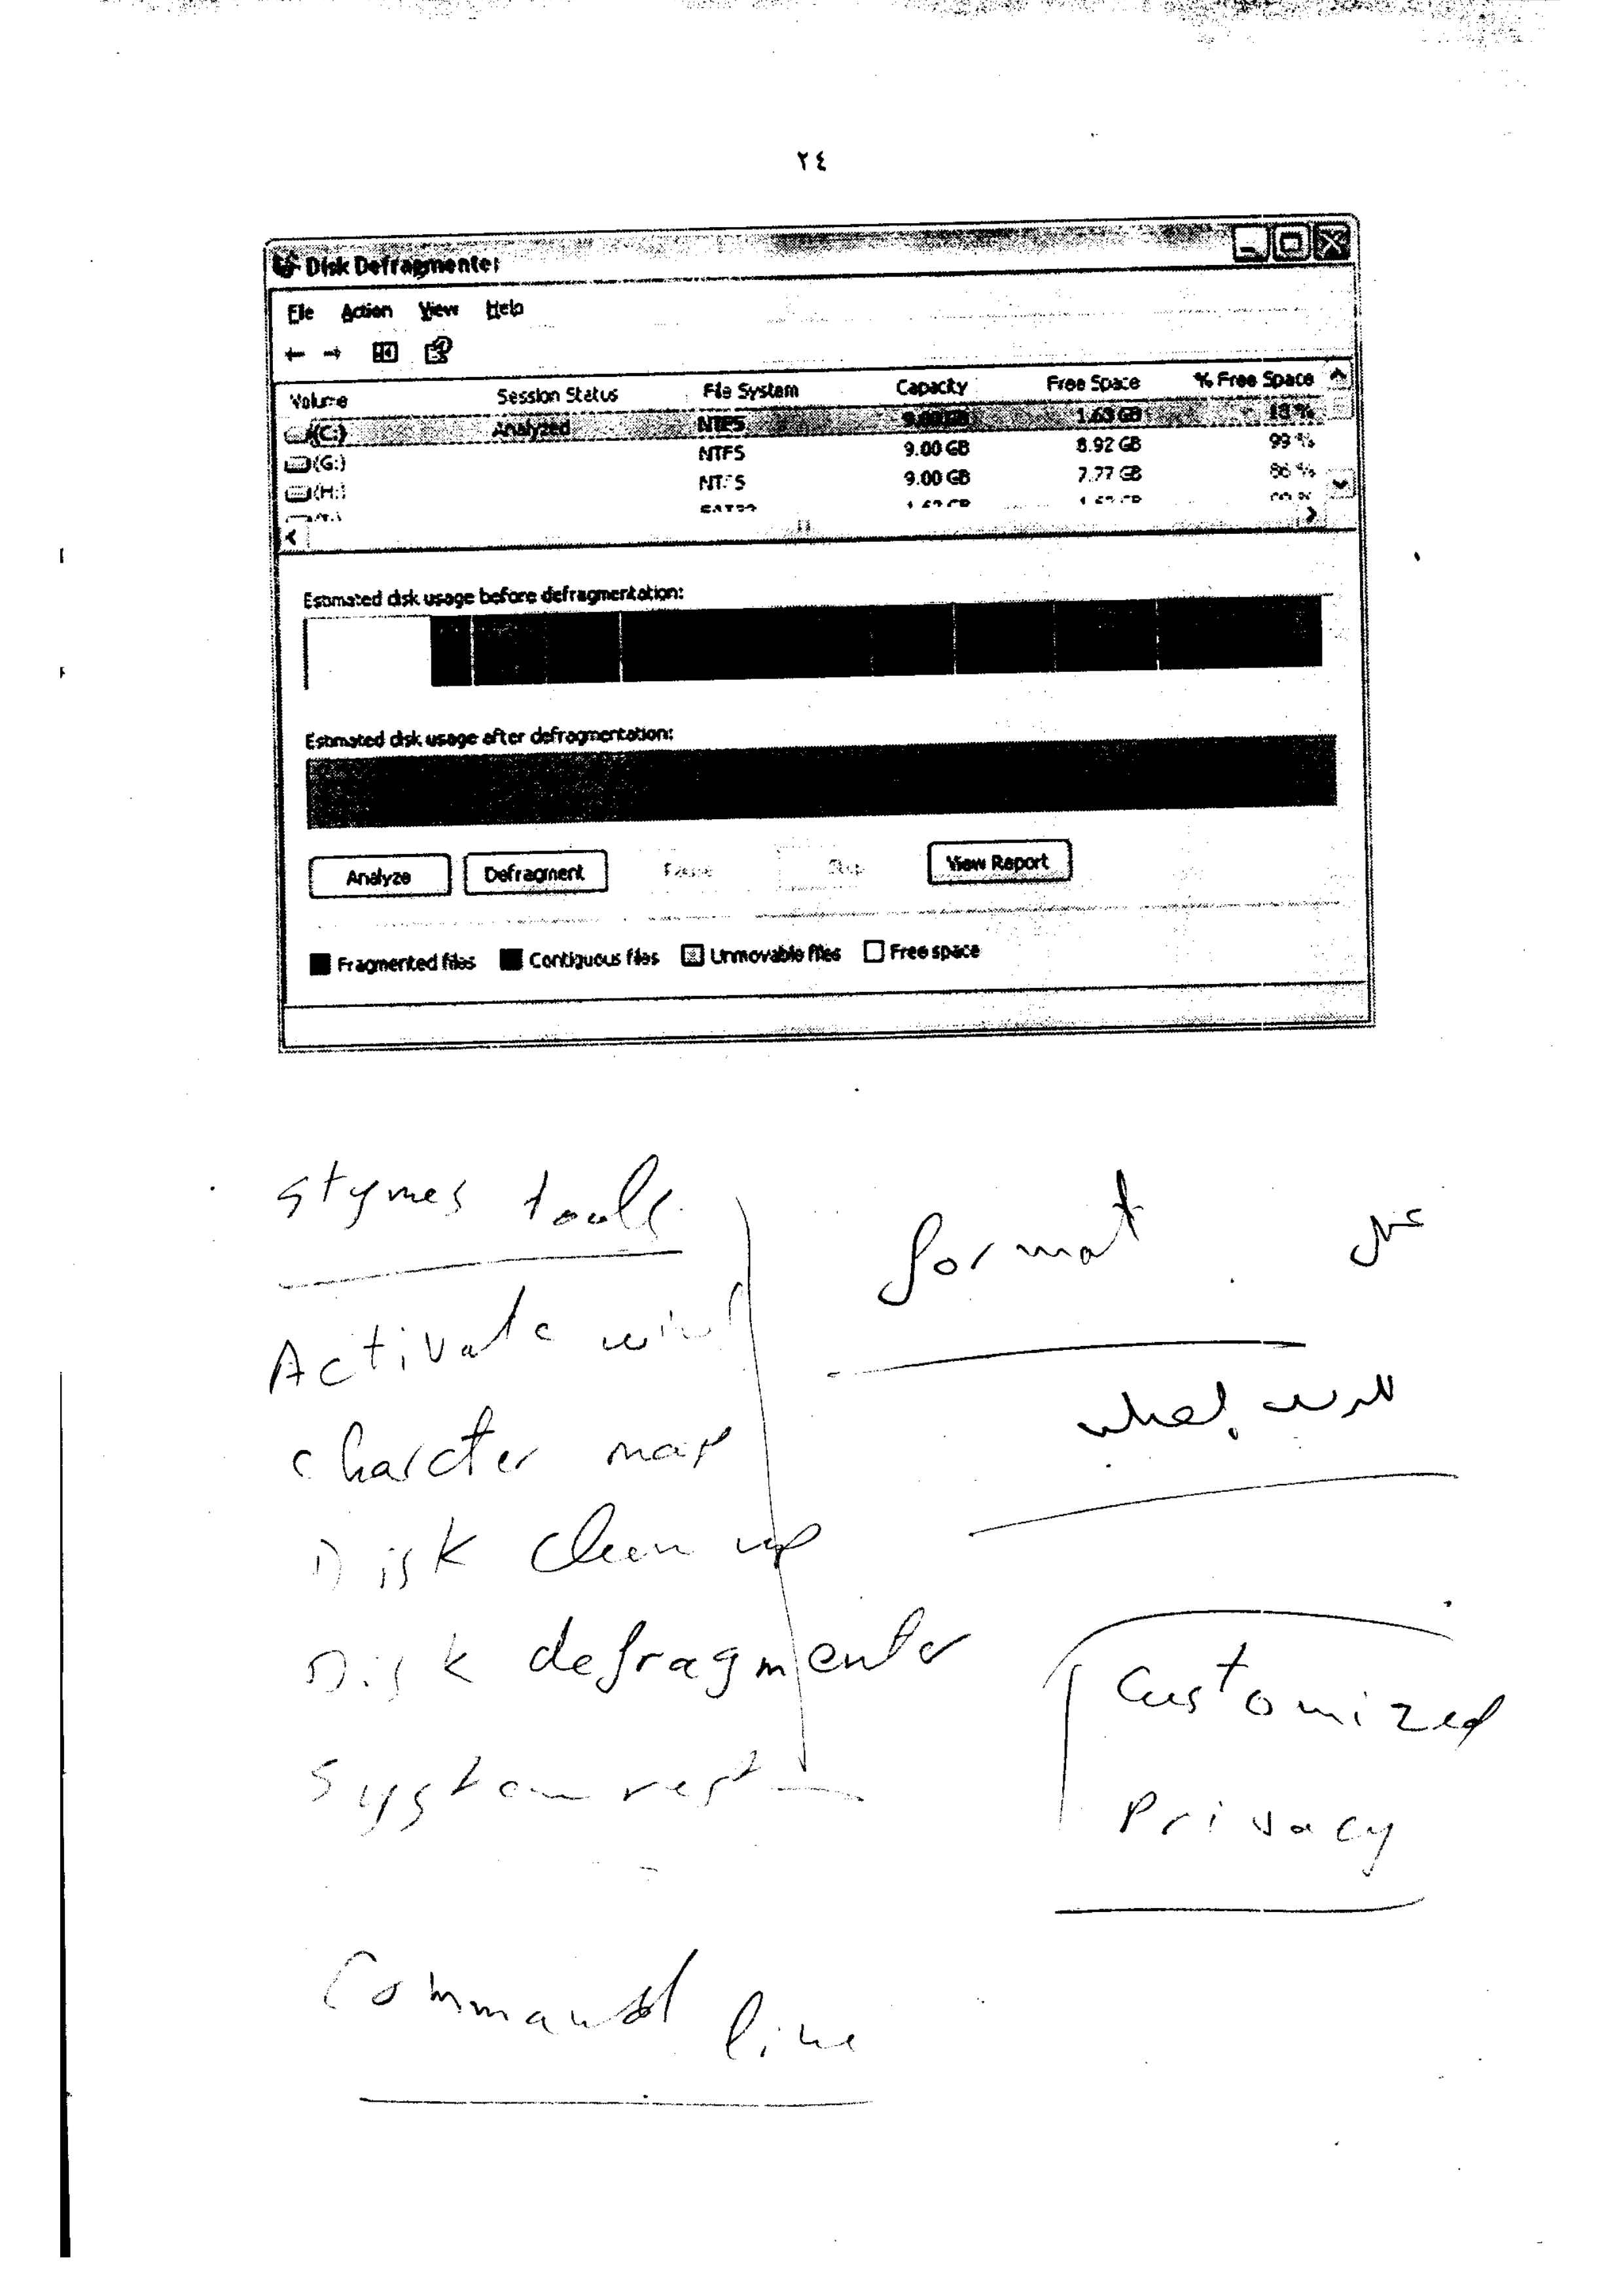 ٢٤
Disk Defragmenter
File Action View Help
Volume Session Status File System Capacity Free Space % Free Space
(C:) Analyzed NTFS 9.00 GB 1.63 GB 18 %
(G:) NTFS 9.00 GB 8.92 GB 99 %
(H:) NTFS 9.00 GB 7.77 GB 86 %
Estimated disk usage before defragmentation:
Estimated disk usage after defragmentation:
Analyze Defragment Pause Stop View Report
Fragmented files Contiguous files Unmovable files Free space
stymes tools
Activate wind
charcter map
Disk clean up
Disk defragmenter
System rest
Command line
format عمل
Customized
Privacy